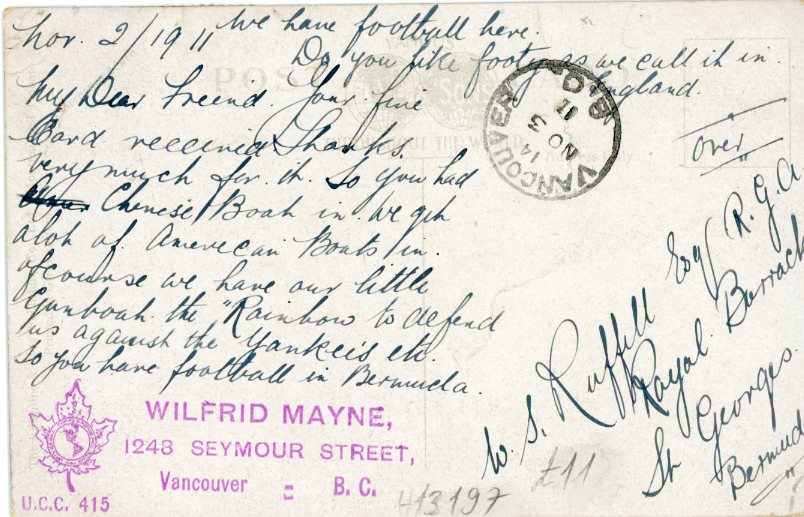 Nov. 2/1911
My Dear Freend. Your fine
Card received Thanks
very much for it. So you had
Chenese Boat in. We get
alot of American Boats in.
ofcourse we have our little
Gunboat. the "Rainbow to defend
us against the Yankeis etc.
So you have football in Bermuda.
We have football here.
Do you like footy as we call it in
England.
over
POST
VANCOUVER
14
NO 3
11
W. S. Ruffell Esq R.G.A.
Royal Barrack
St Georges.
Bermud
WILFRID MAYNE,
1248 SEYMOUR STREET,
Vancouver = B. C.
U.C.C. 415
413197
£11